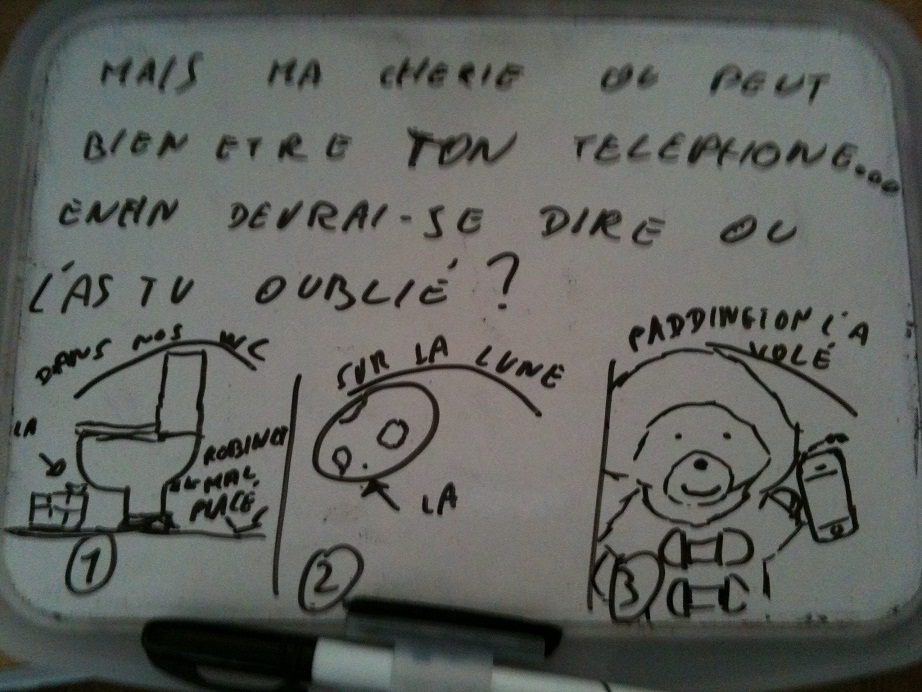 MAIS MA CHERIE OU PEUT
BIEN ETRE TON TELEPHONE...
ENFIN DEVRAI-SE DIRE OU
L'AS TU OUBLIÉ?
DANS NOS WC
LA
ROBINET
MAL
PLACÉ
1
SUR LA LUNE
LA
2
PADDINGTON L'A
VOLÉ
3